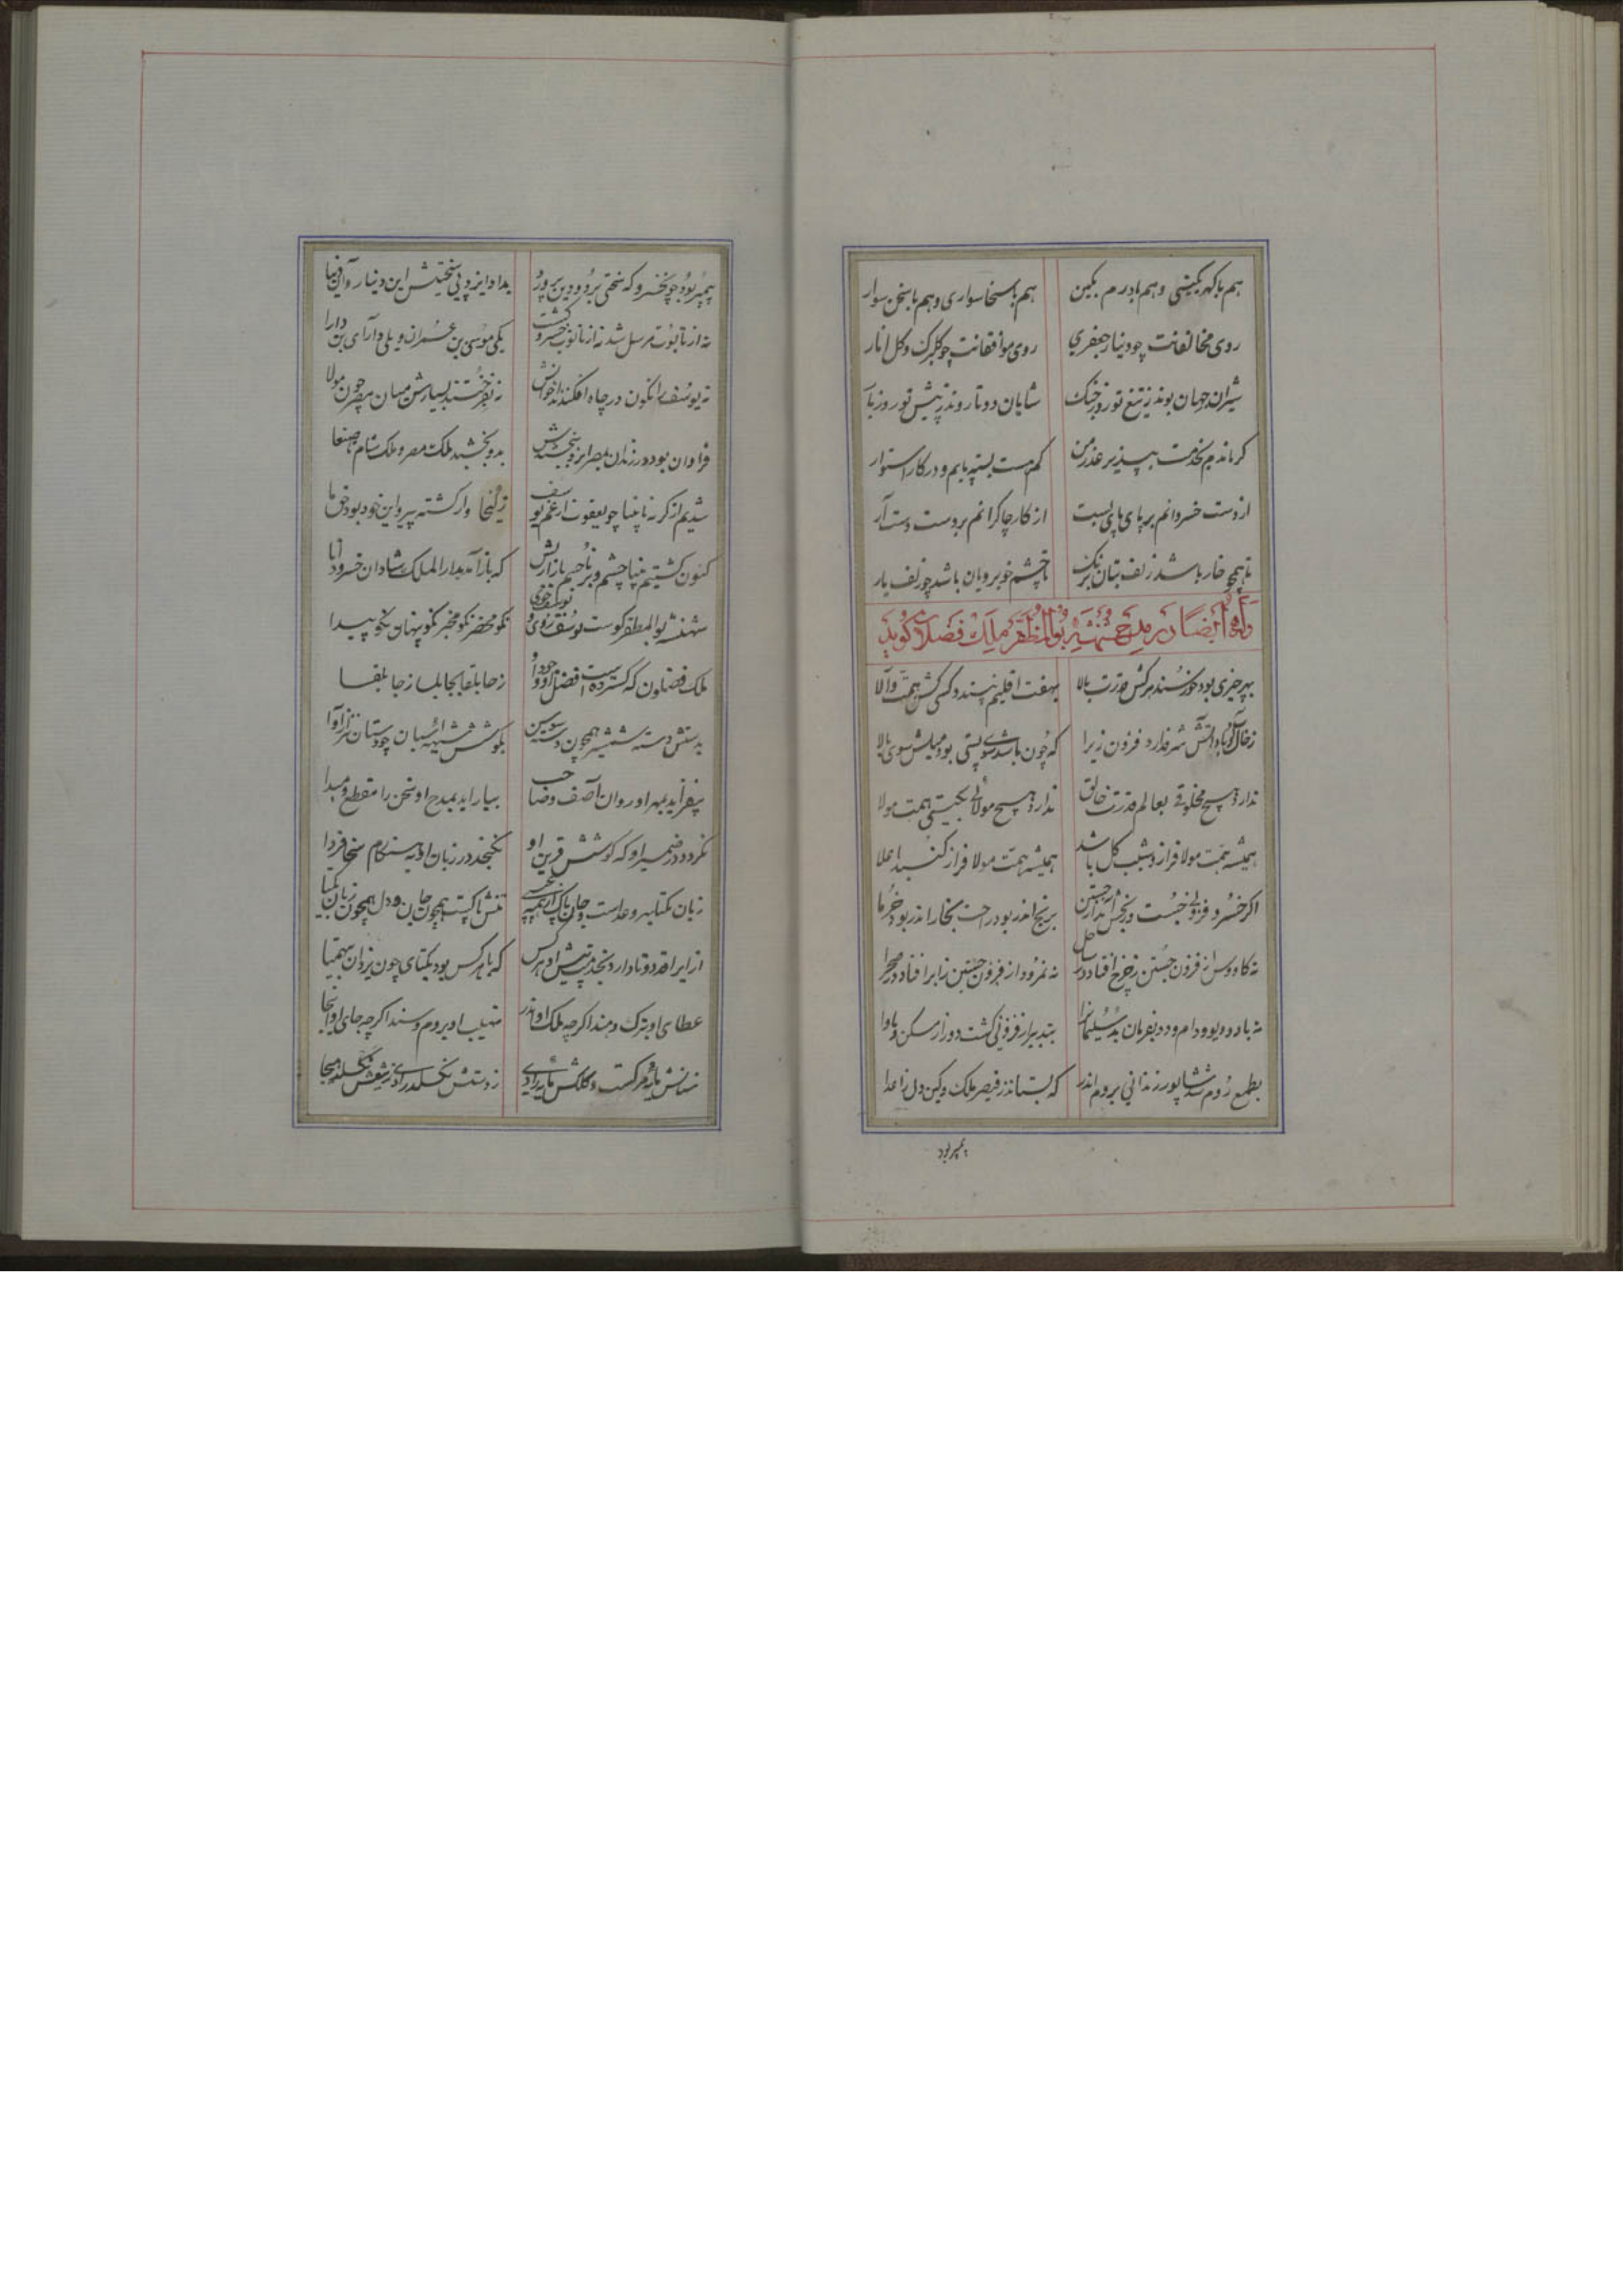 هم با کهر بکیشی و هم بادرم بکین هم با سخا سواری و هم با سخن سوار
روی مخالفانت چو دینار جعفری روی موافقانت چو کلبرک و کل انار
شیران جهان بوند ز تیغ تو روز جنک شاهان دوتا روند بر پیش تو روز بار
کر ماندم بخدمت بپذیر عذر من کم هست بسته پایم و در کار استوار
از دست خسروانم بر پای پای بست از کار چاکرانم بر دست دست آر
تا همچو خار باشد زلف بتان برنک تا چشم خوبرویان باشد چو زلف یار
وله ایضا در مدح شهنشه بوالمظفر ملک فضلون کوید
بهر چیزی بود خورسند هر کش قدرت بالا بهفت اقلیم نپسندد کسی کش همت والا
ز خاک و باد آتش شرف دارد فزون زیرا که چون باشد سوی پستی بود میلش سوی بالا
ندارد هیچ مخلوقی بعالم قدرت خالق ندارد هیچ مولائی بکیتی همت مولا
همیشه همت مولا فراز و شیب کل باشد همیشه همت مولا فراز کنبد اعلا
اکر خسرو فزونی جست و رنجش بد از جستن برنج اندر بود راحت بخار اندر بود خرما
نه کاووس از فزون جستن ز چرخ افتاد در ساحل نه نمرود از فزون جستن ز ابر افتاد در صحرا
نه باد و دیو و دام و دد بفرمان بد سلیمانرا بتدبیر از فزونی کشت دور از مسکن و ماوا
بطمع روم شد شاپور زندانی بروم اندر که بستاند ز قیصر ملک و کین دل ز اعدا
پیمبر بود
پیمبر بود چو خسرو که سختی برد و دین پرور بداد ایزد پی سختیش این دنیا و آن دنیا
نه از تابوت مرسل شد نه از تابوت خسرو کشت یکی موسی بن عمران و یکی دارای بن دارا
نه یوسف را نکون در چاه افکندند اخوانش نه بفروختند بسیارش میان مصر چون مولا
فراوان بود در زندان بمصر ایزد ببخشش بدو بخشید ملکت مصر و ملک شام و صنعا
شدیم از کریه نابینا چو یعقوب از غم یوسف زلیخا وار کشته پیر و این خود بود حق ما
کنون کشتیم بینا چشم و برنا جسم باز ازش که باز آمد بدار الملک شادان خسرو دانا
شهنشه بوالمظفر کوست یوسف روی و یوسف خوی نکو محضر نکو مخبر نکو پنهان نکو پیدا
ملک فضلون که کسترده است افضل از وجود او ز جابلقا بجابلسا ز جابلسا بجابلقا
بدستش دسته شمشیر همچون دسته سوسن بکوشش شیهه اسبان چو دستان نزار آوا
بیفزاید بمهر او روان آصف و صاحب بیاراید بمدح او سخن را مقطع و مبدا
نکردد در ضمیر او که کوشش قرین او نکنجد در زبان او بهنکام سخا فردا
زبان یکتا بهر وعد است و جان پاک از همه تنش پاکست همچون جان و دل همچون زبان یکتا
ازیرا قد دوتا دارد بخدمت پیش او هر کس که با هر کس بود یکتای چون یزدان بیهمتا
عطای او بترک و هند اکرچه ملک او اندر نهیب او بروم و سند اکرچه جای او اینجا
سنانش مایه مرکست و کلکش مایه رادی ز دستش نکسلد رادی ز تیغش نکسلد هیجا